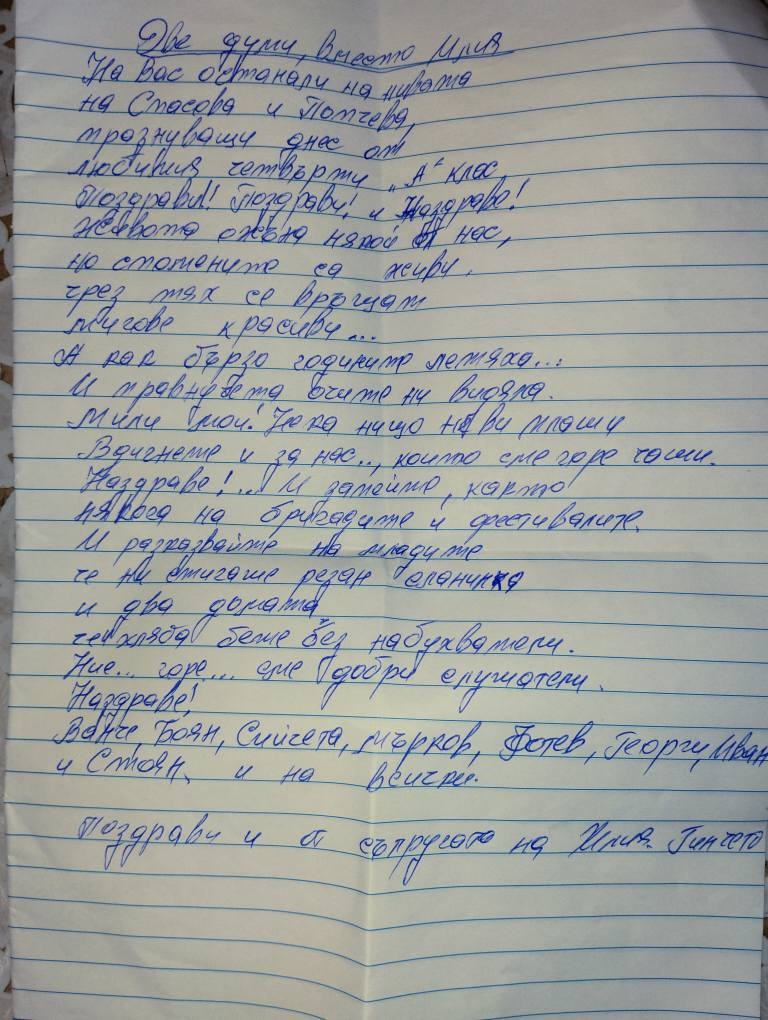 Две думи, вместо Илия
На Вас останали на нивата
на Спасова и Попчева,
празнуващи днес от
любимия четвърти „А“ клас
Поздрави! Поздрави! и Наздраве!
Живота ожъна някой от нас,
но спомените са живи.
чрез тях се връщат
мигове красиви...
А как бързо годините летяха...
И правнучета очите ни видяха.
Мили мои! Нека нищо не ви плаши
Вдигнете и за нас.., които сме горе чаши.
Наздраве!... И запейте, както
някога на бригадите и фестивалите.
И разказвайте на младите
че ни стигаше резан сланинка
и два домата
че хляба беше без набухватели.
Ние... горе... сме добри слушатели.
Наздраве!
Ванче, Боян, Сийчета, Мърков, Фотев, Георги, Иван
и Стоян, и на всички.
Поздрави и от съпругата на Илия. Гинчето